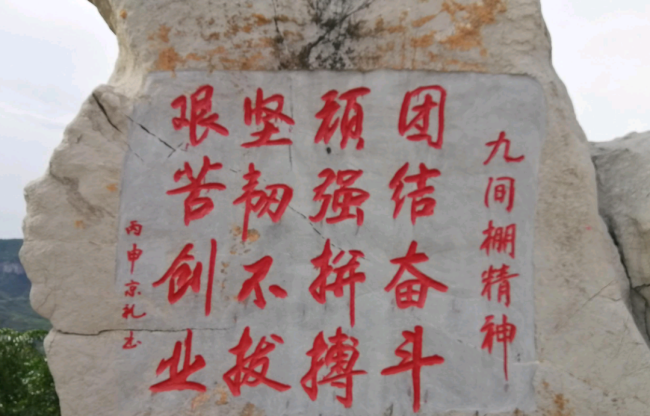 九间棚精神
团结奋斗
顽强拼搏
坚韧不拔
艰苦创业
丙申京礼书